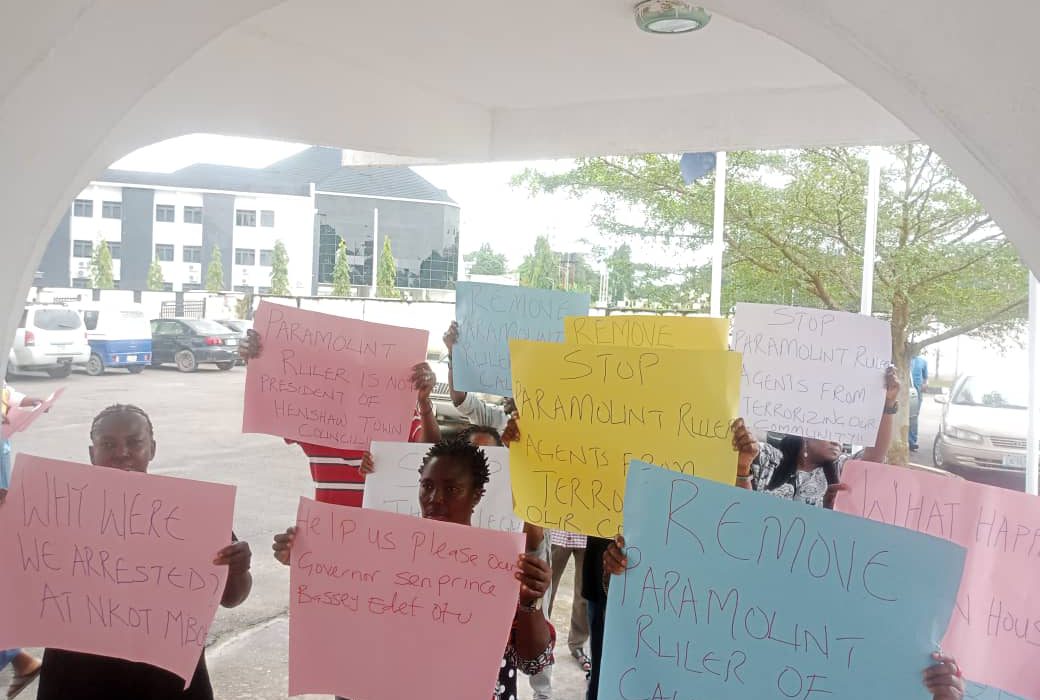 PARAMOUNT
RULER IS NOT
PRESIDENT OF
HENSHAW TOWN
COUNCIL!!
REMOVE
PARAMOUNT
RULER
CAL
REMOVE
STOP
PARAMOUNT RULER
AGENTS FROM
TERRO
OUR CO
STOP
PARAMOUNT RULER
AGENTS FROM
TERRORIZING OUR
COMMUNITY!!
WHY WERE
WE ARRESTED?
AT NKOT MBO
Help us Please our
Governor sen prince
Bassey Edet otu
REMOVE
PARAMOUNT
RULER OF
CAL
WHAT HAPP
N HOUS